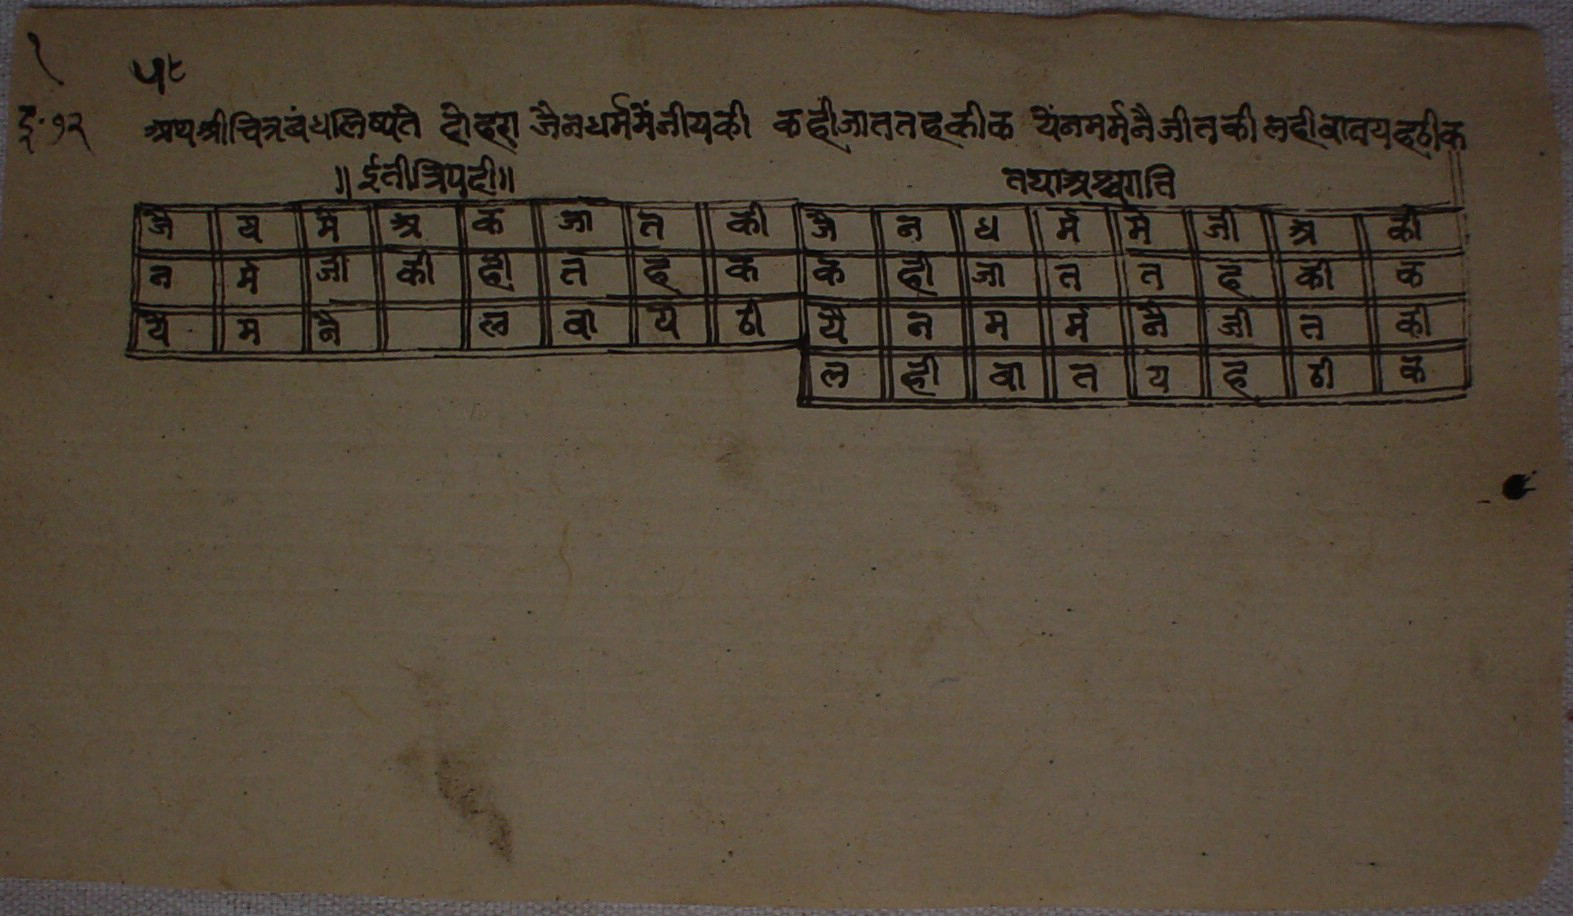 १
५८
इ॰१२
अथ श्री चित्रबंध लिष्यते दोहरा जैन धर्म में नीय की कही जात तहकीक यें न मर्म नै जीत की लही वात यह ठीक
॥ ईती त्रिपदी ॥
तथा अश्वगति
जै य मे अ क जा त की
न र्म जी की ही त ह क
ये म नै ल वा य ठी
जै न ध र्म मे जी अ की
क ही जा त त ह की क
यै न म र्म नै जी त की
ल ही वा त य ह ठी क